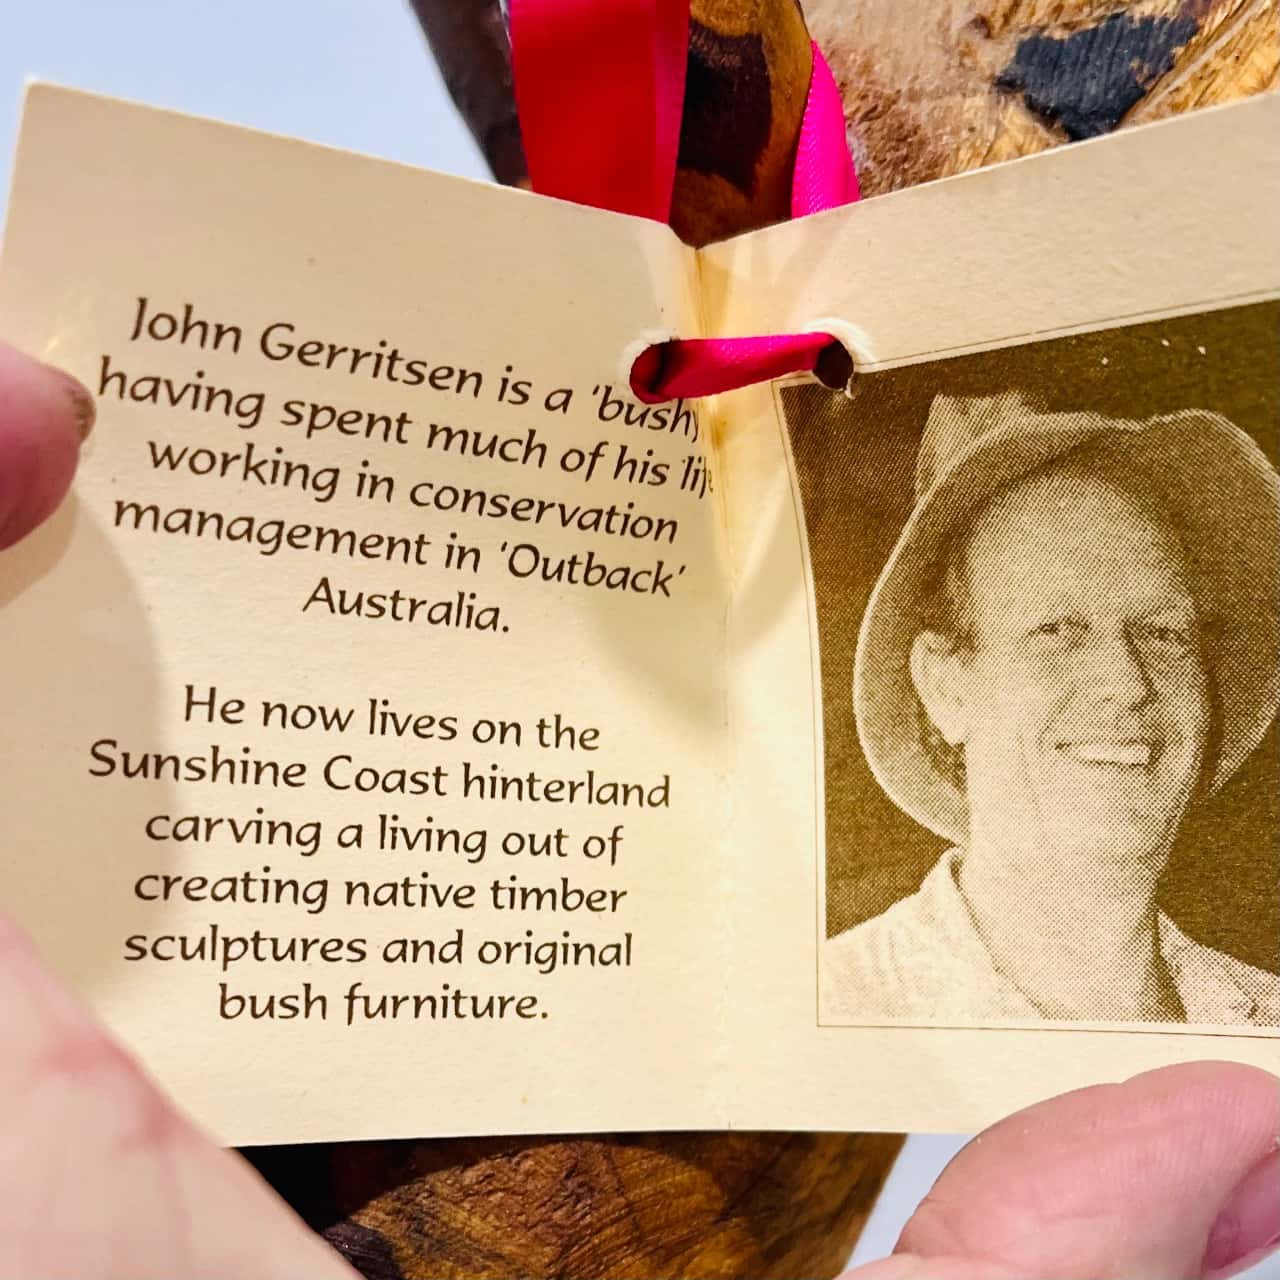 John Gerritsen is a 'bushy
having spent much of his life
working in conservation
management in 'Outback'
Australia.
He now lives on the
Sunshine Coast hinterland
carving a living out of
creating native timber
sculptures and original
bush furniture.